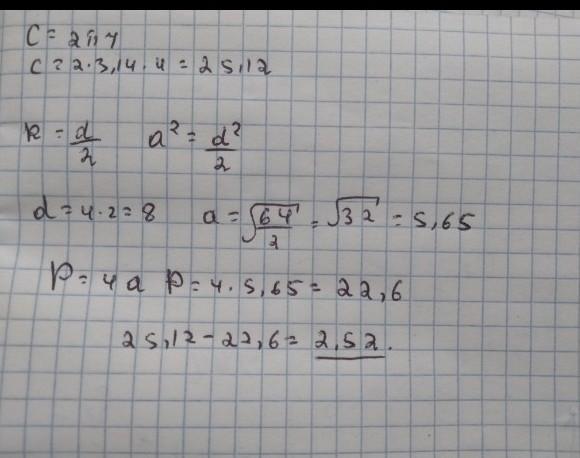 C = 2πr
C = 2·3,14·4 = 25,12
R = d/2 a² = d²/2
d = 4·2 = 8 a = √64/2 = √32 = 5,65
P = 4a P = 4·5,65 = 22,6
25,12 - 22,6 = 2,52.